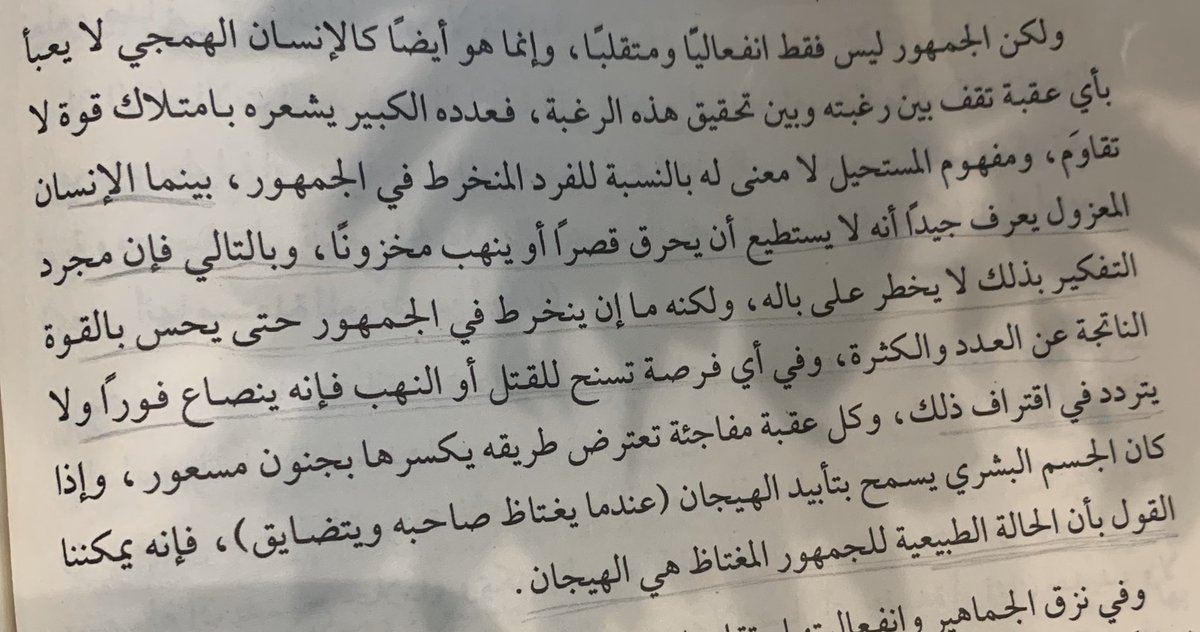 ولكن الجمهور ليس فقط انفعاليًا ومتقلبًا، وإنما هو أيضًا كالإنسان الهمجي لا يعبأ
بأي عقبة تقف بين رغبته وبين تحقيق هذه الرغبة، فعدده الكبير يشعره بامتلاك قوة لا
تقاوَم، ومفهوم المستحيل لا معنى له بالنسبة للفرد المنخرط في الجمهور، بينما الإنسان
المعزول يعرف جيدًا أنه لا يستطيع أن يحرق قصرًا أو ينهب مخزونًا، وبالتالي فإن مجرد
التفكير بذلك لا يخطر على باله، ولكنه ما إن ينخرط في الجمهور حتى يحس بالقوة
الناتجة عن العدد والكثرة، وفي أي فرصة تسنح للقتل أو النهب فإنه ينصاع فورًا ولا
يتردد في اقتراف ذلك، وكل عقبة مفاجئة تعترض طريقه يكسرها بجنون مسعور، وإذا
كان الجسم البشري يسمح بتأبيد الهيجان (عندما يغتاظ صاحبه ويتضايق)، فإنه يمكننا
القول بأن الحالة الطبيعية للجمهور المغتاظ هي الهيجان.
وفي نزق الجماهير